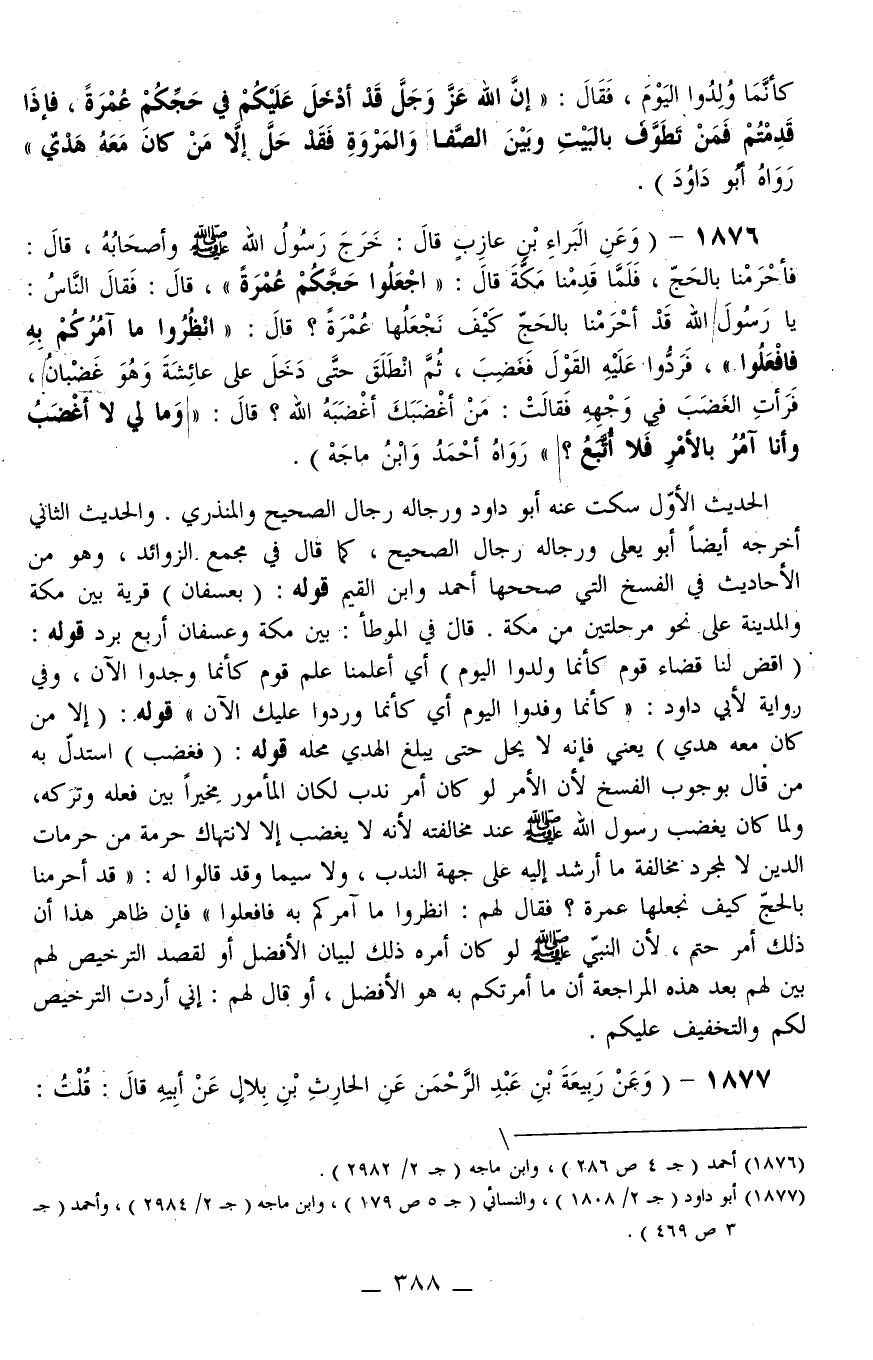 كأنَّمَا وُلِدُوا اليَوْمَ ، فَقَالَ : « إنَّ الله عَزَّ وَجَلَّ قَدْ أدْخَلَ عَلَيْكُمْ في حَجِّكُمْ عُمْرَةً ، فإذَا
قَدِمْتُمْ فَمَنْ تَطَوَّفَ بالبَيْتِ وبَيْنَ الصَّفا وَالمَرْوَةِ فَقَدْ حَلَّ إلَّا مَنْ كانَ مَعَهُ هَدْيٌ »
رَوَاهُ أبُو دَاوُدَ ) .
١٨٧٦ – ( وَعَنِ البَراءِ بْنِ عازِبٍ قالَ : خَرَجَ رَسُولُ الله ﷺ وأصحَابُهُ ، قالَ :
فأحْرَمْنا بالحَجّ ، فَلَمَّا قَدِمْنا مَكَّةَ قالَ : « اجْعَلُوا حَجَّكُمْ عُمْرَةً » ، قالَ : فَقالَ النَّاسُ :
يا رَسُولَ الله قَدْ أحْرَمْنا بالحَجّ كَيْفَ نَجْعَلُها عُمْرَةً ؟ قالَ : « انْظُرُوا ما آمُرُكُمْ بِهِ
فافْعَلُوا » ، فَرَدُّوا عَلَيْهِ القَوْلَ فَغَضِبَ ، ثُمَّ انْطَلَقَ حتَّى دَخَلَ على عائِشَةَ وَهُوَ غَضْبانُ ،
فَرَأتِ الغَضَبَ فِي وَجْهِهِ فَقالَتْ : مَنْ أغْضَبَكَ أغْضَبَهُ الله ؟ قالَ : « وَما لي لا أغْضَبُ
وأنا آمُرُ بالأمْرِ فَلا أُتَّبَعُ ؟ » رَوَاهُ أحْمَدُ وَابْنُ ماجَهْ ) .
الحديث الأوّل سكت عنه أبو داود ورجاله رجال الصحيح والمنذري . والحديث الثاني
أخرجه أيضاً أبو يعلى ورجاله رجال الصحيح ، كما قال في مجمع الزوائد ، وهو من
الأحاديث في الفسخ التي صححها أحمد وابن القيم قوله : ( بعسفان ) قرية بين مكة
والمدينة على نحو مرحلتين من مكة . قال في الموطأ : بين مكة وعسفان أربع برد قوله :
( اقض لنا قضاء قوم كأنما ولدوا اليوم ) أي أعلمنا علم قوم كأنما وجدوا الآن ، وفي
رواية لأبي داود : « كأنما وفدوا اليوم أي كأنما وردوا عليك الآن » قوله : ( إلا من
كان معه هدي ) يعني فإنه لا يحل حتى يبلغ الهدي محله قوله : ( فغضب ) استدلّ به
من قال بوجوب الفسخ لأن الأمر لو كان أمر ندب لكان المأمور مخيراً بين فعله وتركه،
ولما كان يغضب رسول الله ﷺ عند مخالفته لأنه لا يغضب إلا لانتهاك حرمة من حرمات
الدين لا لمجرد مخالفة ما أرشد إليه على جهة الندب ، ولا سيما وقد قالوا له : « قد أحرمنا
بالحجّ كيف نجعلها عمرة ؟ فقال لهم : انظروا ما آمركم به فافعلوا » فإن ظاهر هذا أن
ذلك أمر حتم ، لأن النبيّ ﷺ لو كان أمره ذلك لبيان الأفضل أو لقصد الترخيص لهم
بين لهم بعد هذه المراجعة أن ما أمرتكم به هو الأفضل ، أو قال لهم : إني أردت الترخيص
لكم والتخفيف عليكم .
١٨٧٧ – ( وَعَنْ رَبِيعَةَ بْنِ عَبْدِ الرَّحْمَن عَنِ الحارِثِ بْنِ بِلالٍ عَنْ أبِيهِ قالَ : قُلْتُ :
(١٨٧٦) أحمد ( جـ ٤ ص ٢٨٦ ) ، وابن ماجه ( جـ ٢/ ٢٩٨٢ ) .
(١٨٧٧) أبو داود ( جـ ٢/ ١٨٠٨ ) ، والنسائي ( جـ ٥ ص ١٧٩ ) ، وابن ماجه ( جـ ٢/ ٢٩٨٤ ) ، وأحمد ( جـ
٣ ص ٤٦٩ ) .
— ٣٨٨ —